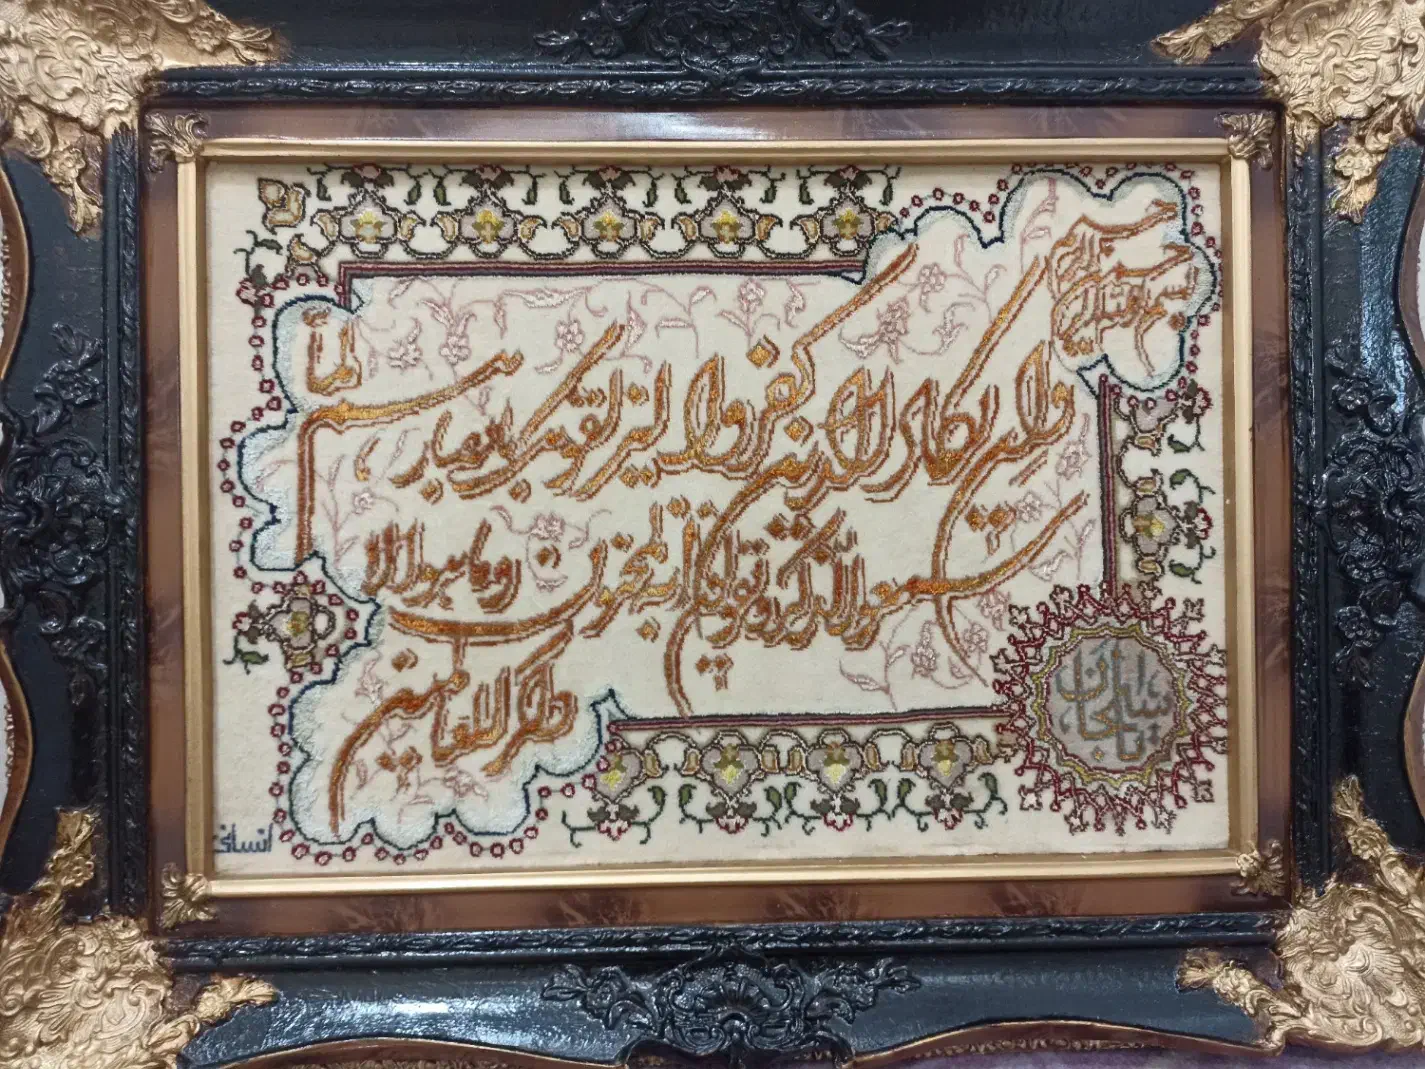 بسم الله الرحمن الرحیم
وان یکاد الذین کفروا لیزلقونک بابصارهم لما
سمعوا الذکر و یقولون انه لمجنون وما هو الا
ذکر للعالمین
انسانی